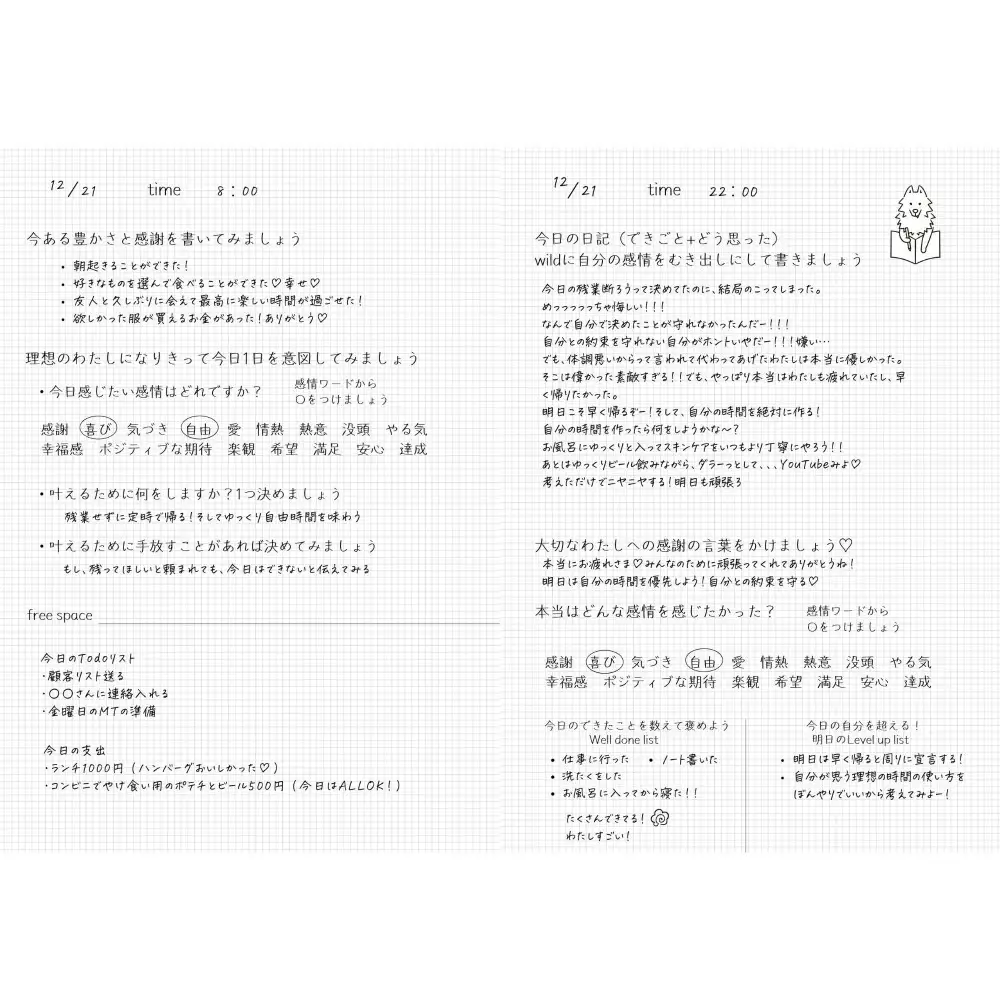 12/21 time 8:00
今ある豊かさと感謝を書いてみましょう
• 朝起きることができた!
• 好きなものを選んで食べることができた♡幸せ♡
• 友人と久しぶりに会えて最高に楽しい時間が過ごせた!
• 欲しかった服が買えるお金があった!ありがとう♡
理想のわたしになりきって今日1日を意図してみましょう
・今日感じたい感情はどれですか?
感情ワードから
〇をつけましょう
感謝 喜び 気づき 自由 愛 情熱 熱意 没頭 やる気
幸福感 ポジティブな期待 楽観 希望 満足 安心 達成
・叶えるために何をしますか?1つ決めましょう
残業せずに定時で帰る!そしてゆっくり自由時間を味わう
・叶えるために手放すことがあれば決めてみましょう
もし、残ってほしいと頼まれても、今日はできないと伝えてみる
free space
今日のTodoリスト
・顧客リスト送る
・〇〇さんに連絡入れる
・金曜日のMTの準備
今日の支出
・ランチ1000円(ハンバーグおいしかった♡)
・コンビニでやけ食い用のポテチとビール500円(今日はALLOK!)
12/21 time 22:00
今日の日記(できごと+どう思った)
wildに自分の感情をむき出しにして書きましょう
今日の残業断ろうって決めてたのに、結局のこってしまった。
めっっっっっちゃ悔しい!!!
なんで自分で決めたことが守れなかったんだー!!!
自分との約束を守れない自分がホントいやだー!!!嫌い…
でも、体調悪いからって言われて代わってあげたわたしは本当に優しかった。
そこは偉かった素敵すぎる!!でも、やっぱり本当はわたしも疲れていたし、早
く帰りたかった。
明日こそ早く帰るぞー!そして、自分の時間を絶対に作る!
自分の時間を作ったら何をしようかな〜?
お風呂にゆっくりと入ってスキンケアをいつもより丁寧にやろう!!
あとはゆっくりビール飲みながら、ダラーっとして、、、YouTubeみよ♡
考えただけでニヤニヤする!明日も頑張ろ
大切なわたしへの感謝の言葉をかけましょう♡
本当にお疲れさま♡みんなのために頑張ってくれてありがとうね!
明日は自分の時間を優先しよう!自分との約束を守る♡
本当はどんな感情を感じたかった?
感情ワードから
〇をつけましょう
感謝 喜び 気づき 自由 愛 情熱 熱意 没頭 やる気
幸福感 ポジティブな期待 楽観 希望 満足 安心 達成
今日のできたことを数えて褒めよう
Well done list
• 仕事に行った • ノート書いた
• 洗たくをした
• お風呂に入ってから寝た!!
たくさんできてる!
わたしすごい!
今日の自分を超える!
明日のLevel up list
• 明日は早く帰ると周りに宣言する!
• 自分が思う理想の時間の使い方を
ぼんやりでいいから考えてみよー!